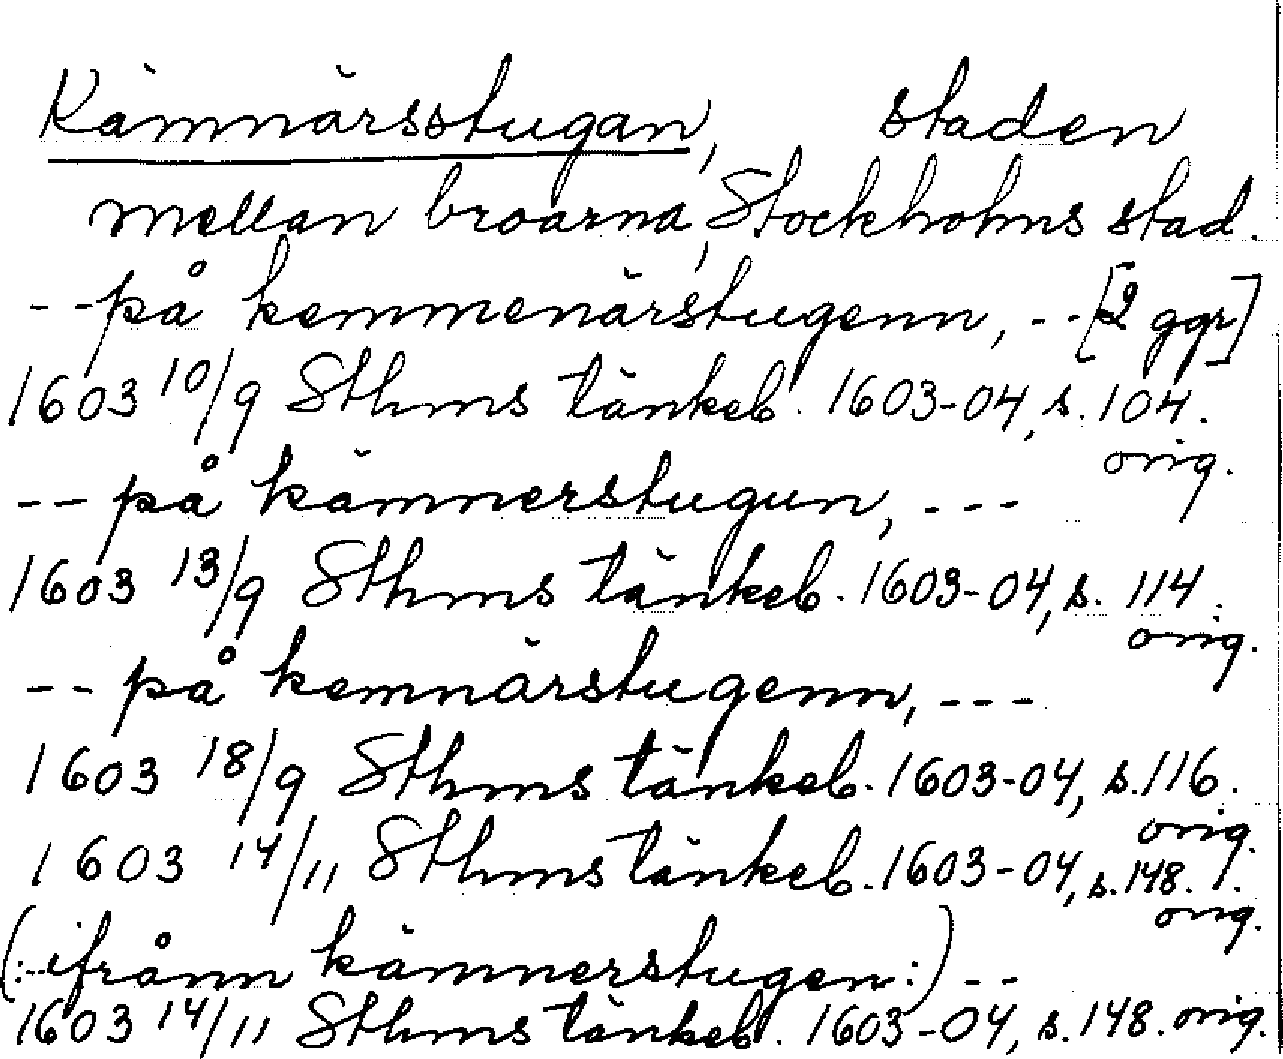 Kämnärsstugan, staden
mellan broarna, Stockholms stad.
-- på kemmenärstugenn, -- [2 ggr]
1603 10/9 Sthms tänkeb. 1603-04, s. 104.
orig.
-- på kämnerstugun, ---
1603 13/9 Sthms tänkeb. 1603-04, s. 114.
orig.
-- på kemnärstugenn, ---
1603 18/9 Sthms tänkeb. 1603-04, s. 116.
orig.
1603 14/11 Sthms tänkeb. 1603-04, s. 148.
orig.
(:-ifrånn kämnerstugen:) --
1603 14/11 Sthms tänkeb. 1603-04, s. 148. orig.